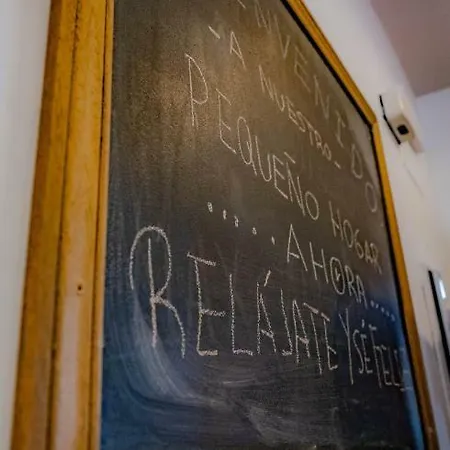 BIENVENIDO
- A NUESTRO -
PEQUEÑO HOGAR
..... AHORA .....
RELÁJATE Y SÉ FELIZ